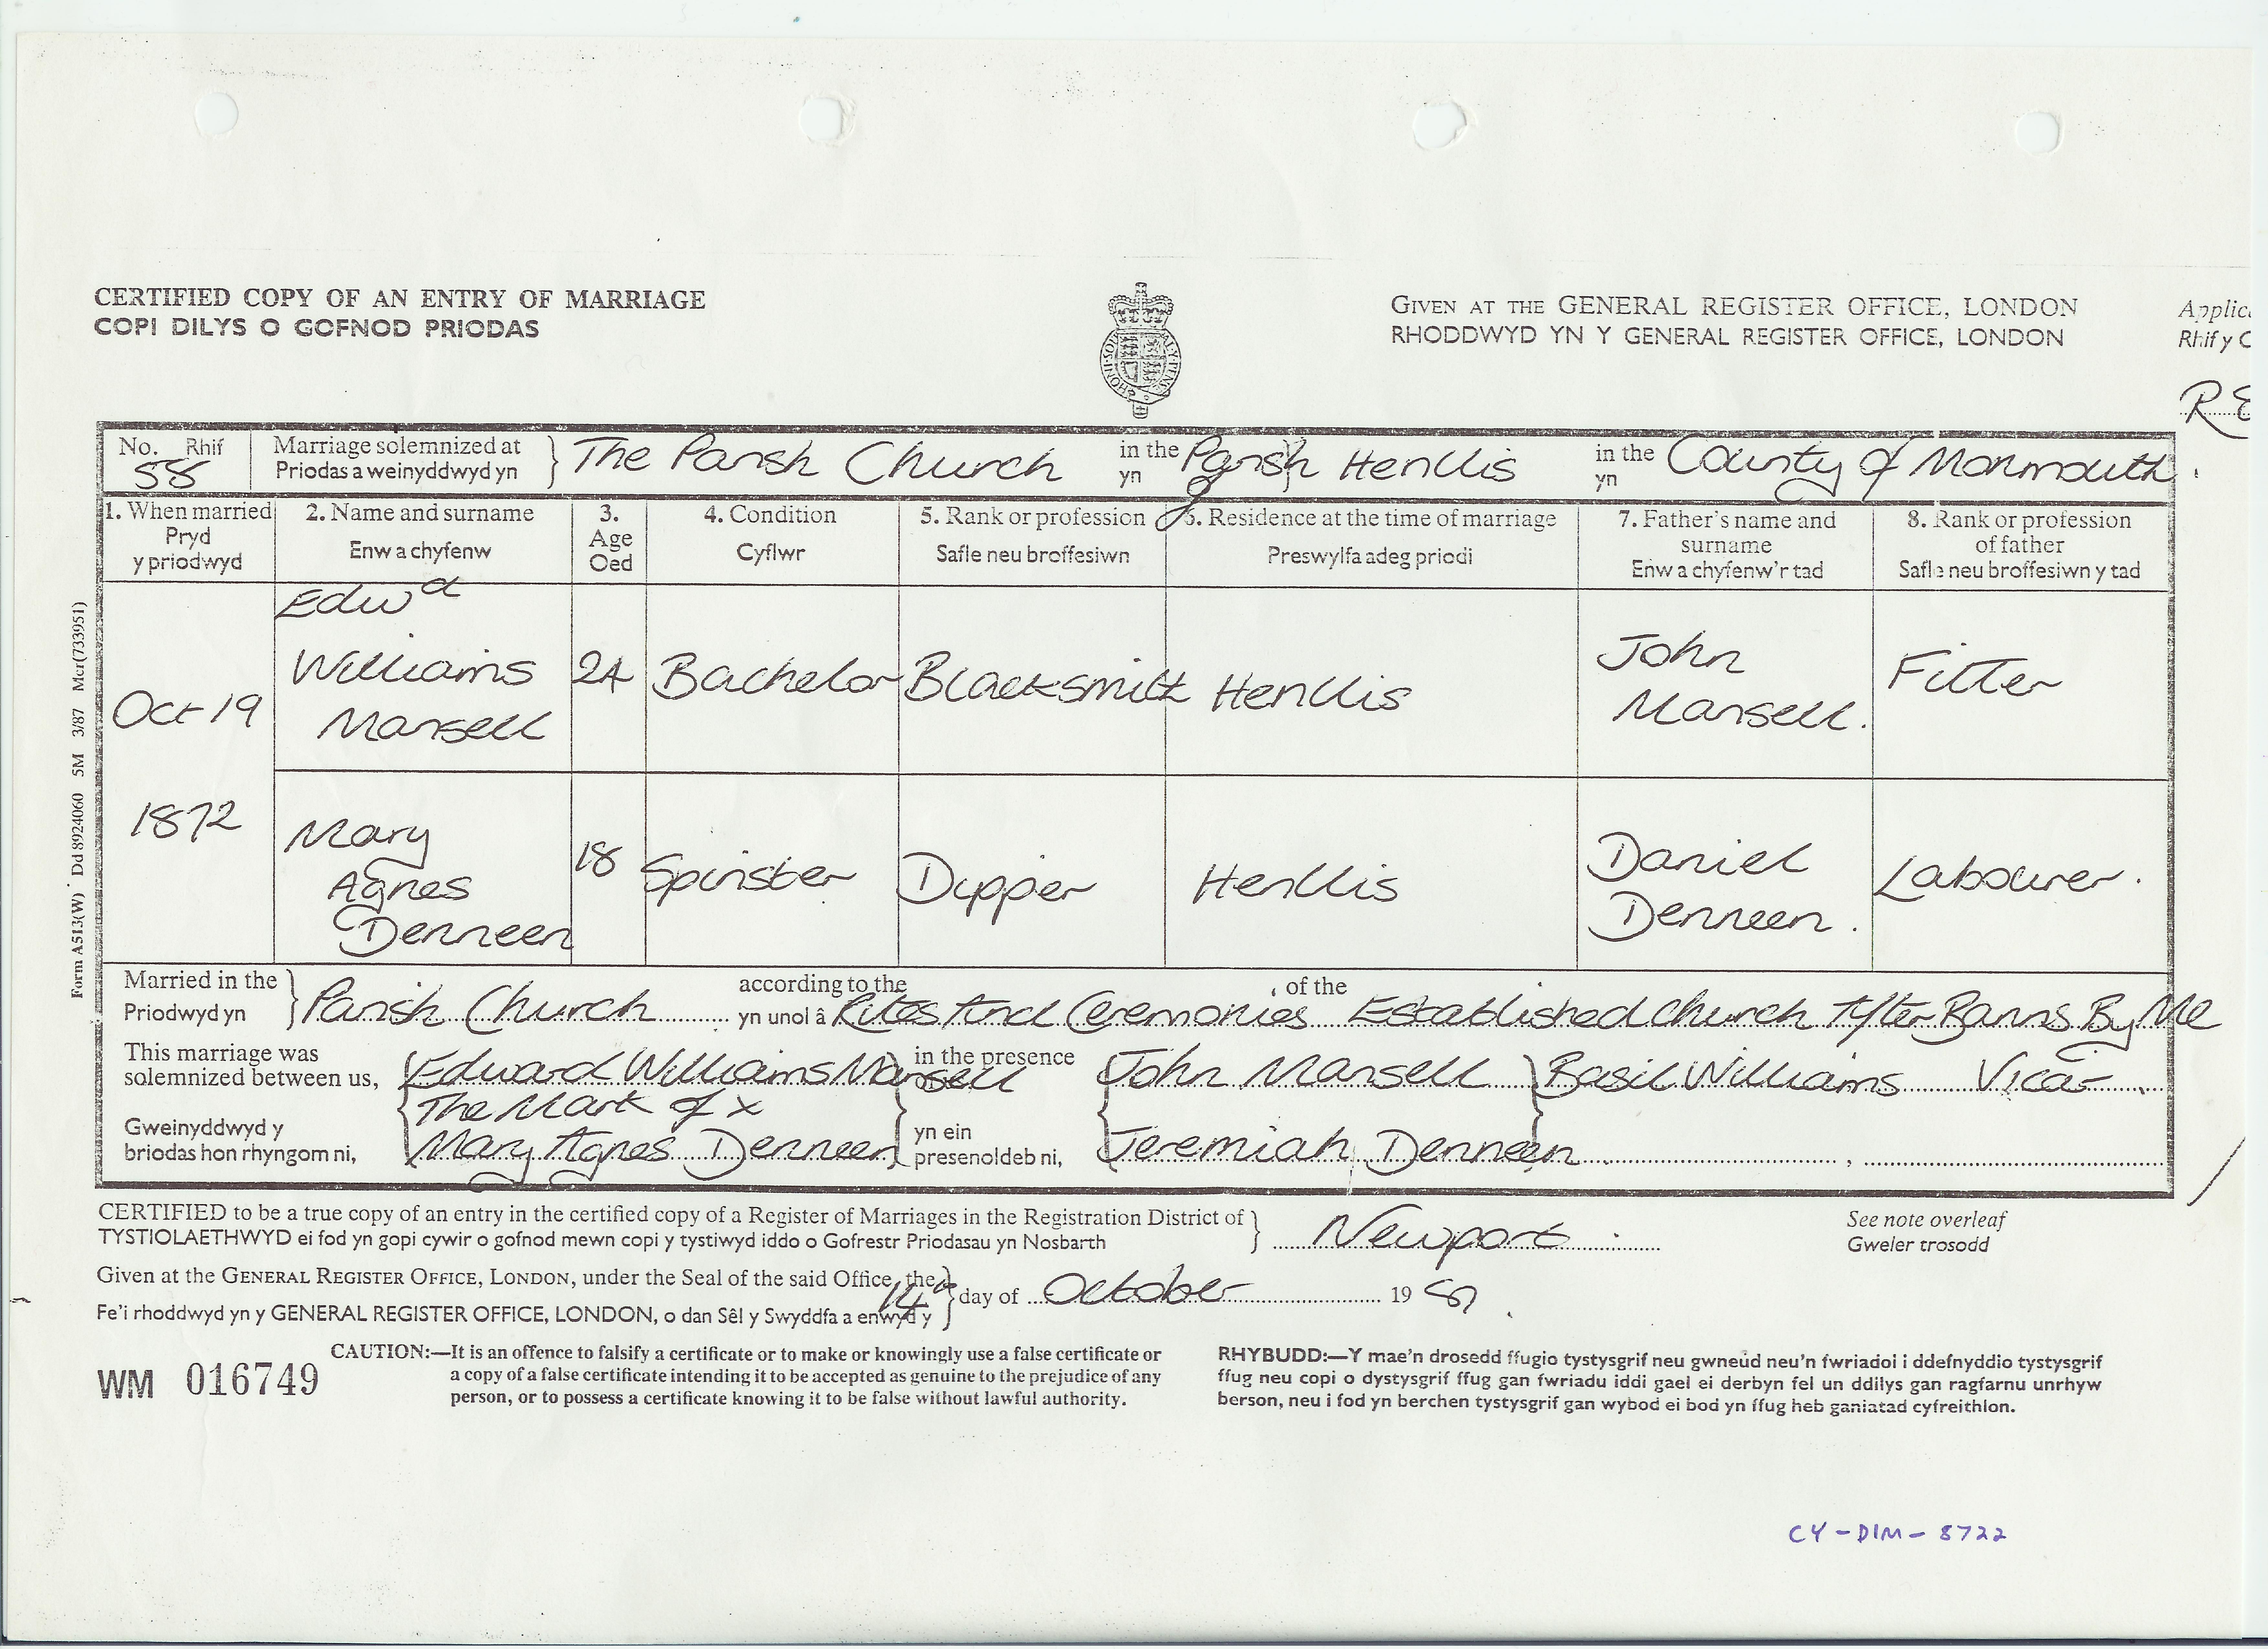 CERTIFIED COPY OF AN ENTRY OF MARRIAGE
COPI DILYS O GOFNOD PRIODAS
GIVEN AT THE GENERAL REGISTER OFFICE, LONDON
RHODDWYD YN Y GENERAL REGISTER OFFICE, LONDON
Applic
Rhif y C
RE
No. Rhif
58
Marriage solemnized at
Priodas a weinyddwyd yn
The Parish Church
in the
yn
Parish of Henllis
in the
yn
County of Monmouth
1. When married
Pryd
y priodwyd
2. Name and surname
Enw a chyfenw
3.
Age
Oed
4. Condition
Cyflwr
5. Rank or profession
Safle neu broffesiwn
6. Residence at the time of marriage
Preswylfa adeg priodi
7. Father's name and
surname
Enw a chyfenw'r tad
8. Rank or profession
of father
Safle neu broffesiwn y tad
Oct 19
1872
Edwd
Williams
Mansell
24
Bachelor
Blacksmith
Henllis
John
Mansell.
Fitter
Mary
Agnes
Denneen
18
Spinster
Dipper
Henllis
Daniel
Denneen.
Labourer.
Married in the
Priodwyd yn
Parish Church
according to the
yn unol â
Rites And Ceremonies
of the
Established Church After Banns By Me
This marriage was
solemnized between us,
Gweinyddwyd y
briodas hon rhyngom ni,
Edward Williams Mansell
The Mark of x
Mary Agnes Denneen
in the presence
of us,
yn ein
presenoldeb ni,
John Mansell
Jeremiah Denneen
Basil Williams Vicar
CERTIFIED to be a true copy of an entry in the certified copy of a Register of Marriages in the Registration District of
TYSTIOLAETHWYD ei fod yn gopi cywir o gofnod mewn copi y tystiwyd iddo o Gofrestr Priodasau yn Nosbarth
Newport
See note overleaf
Gweler trosodd
Given at the GENERAL REGISTER OFFICE, LONDON, under the Seal of the said Office, the
Fe'i rhoddwyd yn y GENERAL REGISTER OFFICE, LONDON, o dan Sêl y Swyddfa a enwyd y
14th
day of October 1987
WM 016749
CAUTION:—It is an offence to falsify a certificate or to make or knowingly use a false certificate or
a copy of a false certificate intending it to be accepted as genuine to the prejudice of any
person, or to possess a certificate knowing it to be false without lawful authority.
RHYBUDD:—Y mae'n drosedd ffugio tystysgrif neu gwneud neu'n fwriadol i ddefnyddio tystysgrif
ffug neu copi o dystysgrif ffug gan fwriadu iddi gael ei derbyn fel un ddilys gan ragfarnu unrhyw
berson, neu i fod yn berchen tystysgrif gan wybod ei bod yn ffug heb ganiatad cyfreithlon.
CY-DIM-8722
Form A513(W) Dd 8924060 5M 3/87 Mcr(733951)
HONI SOIT